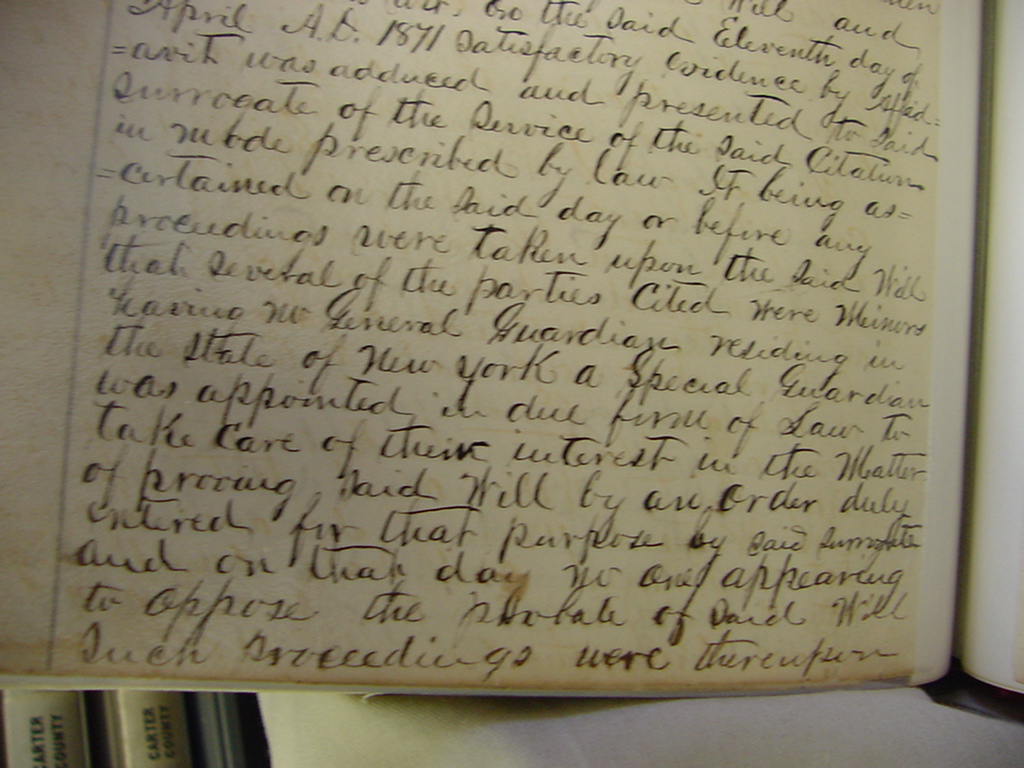 Will and
said Eleventh day of
April A.D. 1871 Satisfactory evidence by affid-
=avit was adduced and presented to said
Surrogate of the Service of the said Citation
in mode prescribed by law It being as-
=certained on the said day or before any
proceedings were taken upon the said Will
that several of the parties cited were Minors
having no General Guardian residing in
the State of New York a Special Guardian
was appointed in due form of Law to
take care of their interest in the Matter
of proving said Will by an order duly
entered for that purpose by said Surrogate
and on that day no one appearing
to oppose the probate of said Will
Such proceedings were thereupon
CARTER
COUNTY
CARTER
COUNTY